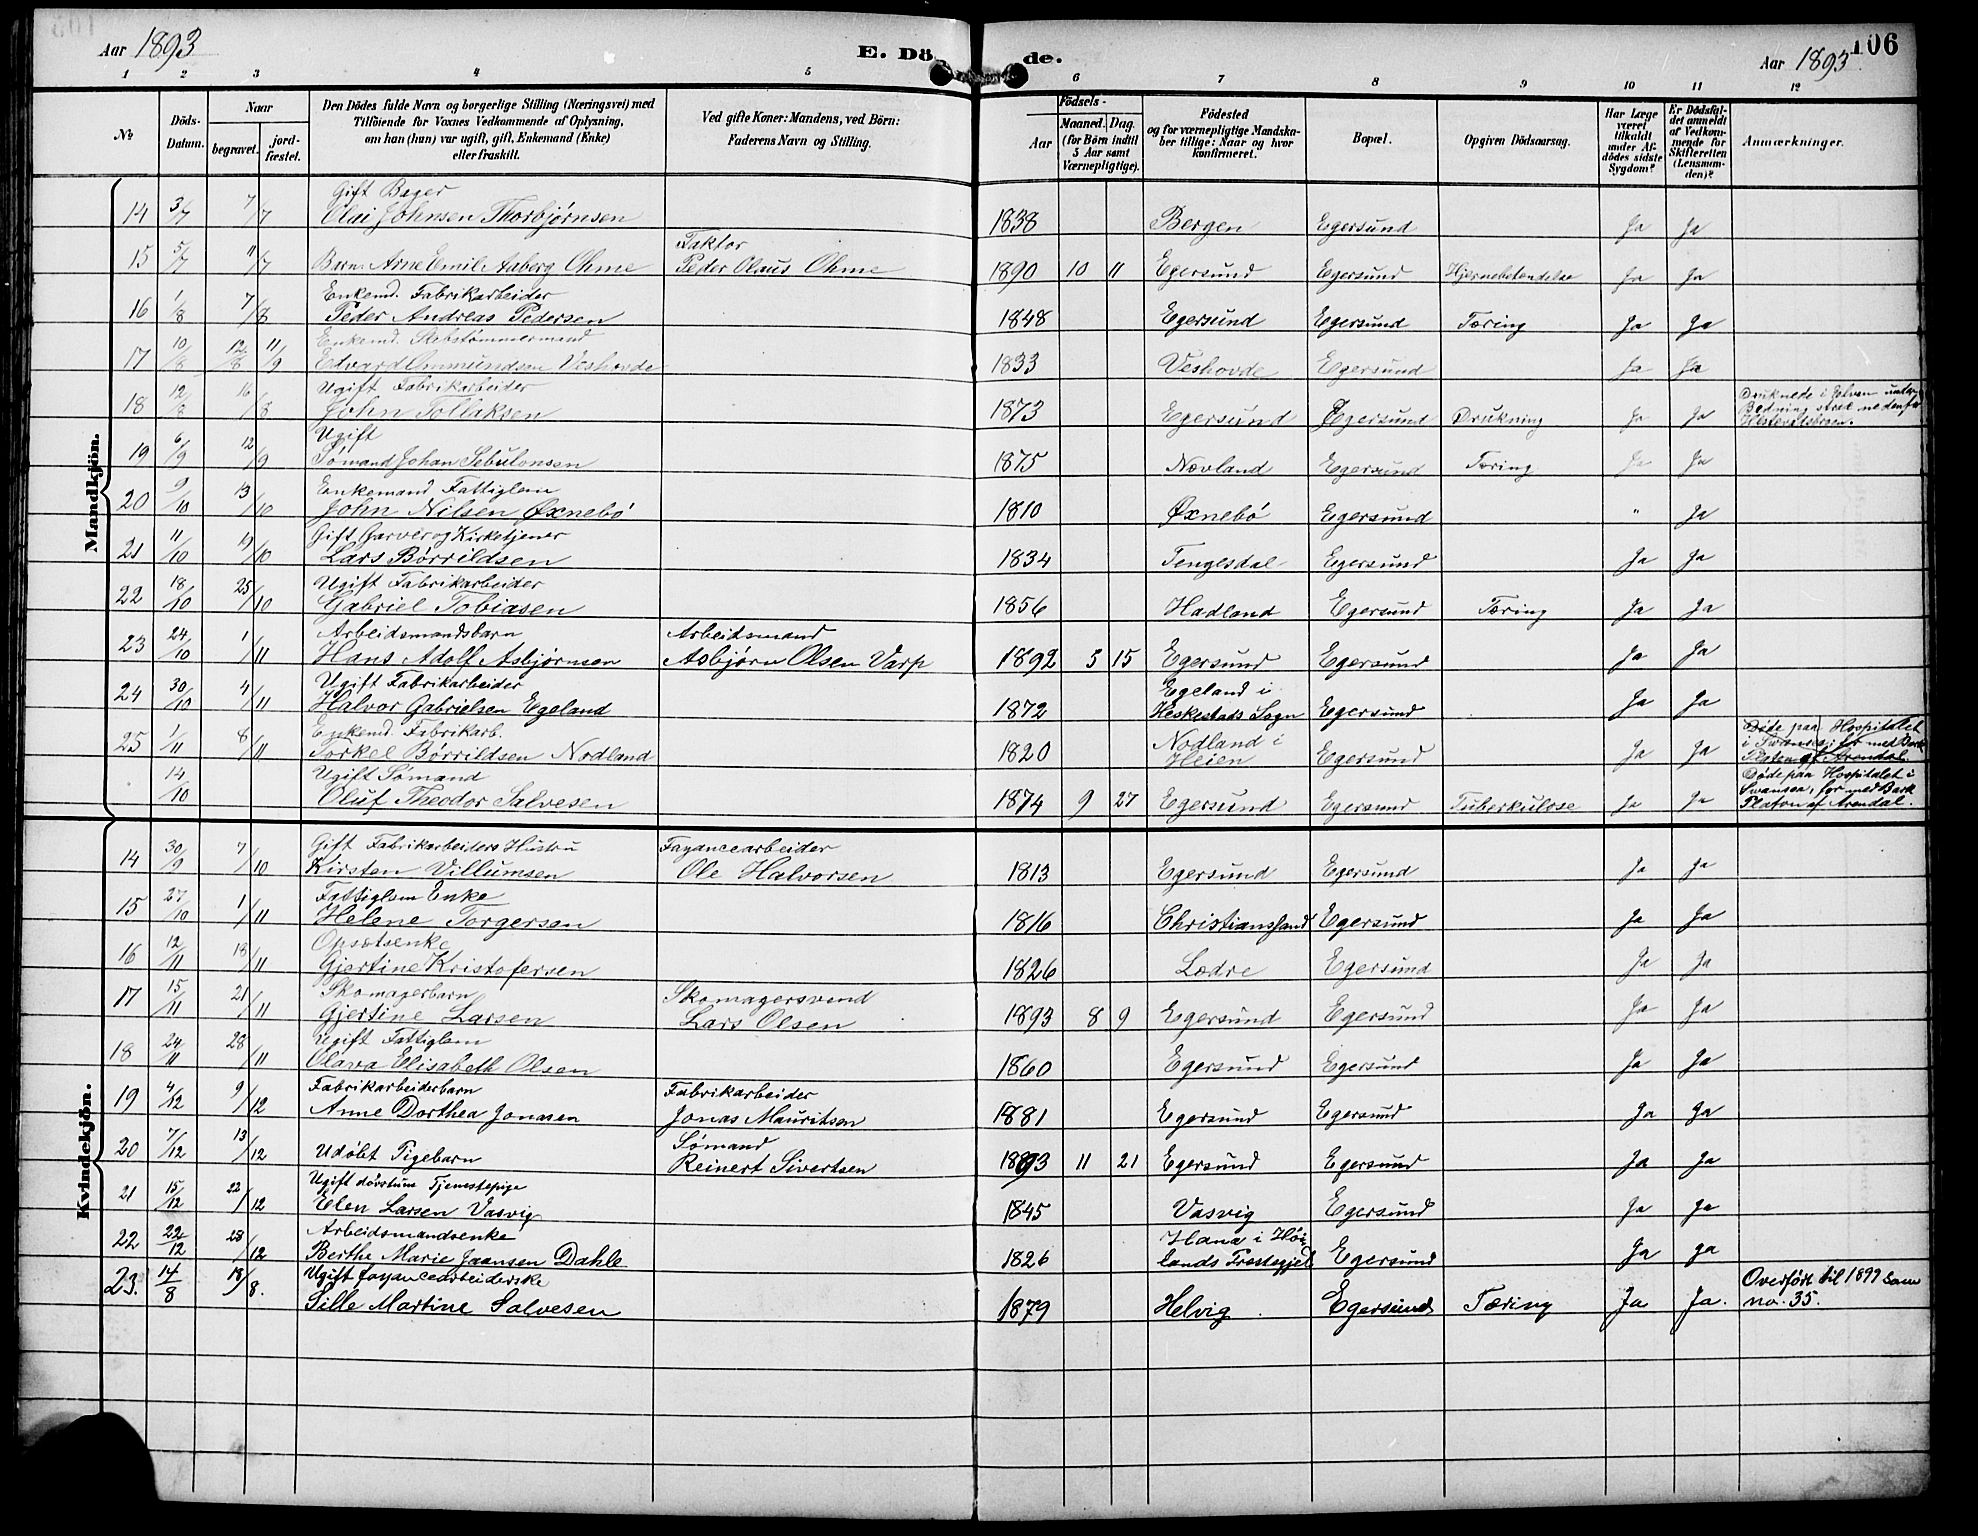 Aar 1893
E. Dö
de.
Aar 1893
106
1 2 3 4 5 6 7 8 9 10 11 12
No
Döds-Datum.
Naar
begravet.
jord-fæstet.
Den Dödes fulde Navn og borgerlige Stilling (Næringsvei) med
Tilföiende for Voxnes Vedkommende af Oplysning,
om han (hun) var ugift, gift, Enkemand (Enke)
eller fraskilt.
Ved gifte Koner: Mandens, ved Börn:
Faderens Navn og Stilling.
Födsels-
Aar
Maaned. Dag.
(for Börn indtil
5 Aar samt
Værnepligtige).
Födested
og for værnepligtige Mandska-
ber tillige: Naar og hvor
konfirmeret.
Bopæl.
Opgiven Dödsaarsag.
Har Læge
været
tilkaldt
under Af-
dödes sidste
Sygdom?
Er Dödsfal-
det anmeldt
af Vedkom-
mende for
Skifteretten
(Lensman-
den)?
Anmærkninger.
Mandkjön.
Gift Bager
14 3/7 7/7 Olai Johnsen Thorbjørnsen 1838 Bergen Egersund Ja Ja
Faktor
15 5/7 11/7 Barn Arne Emil Aaberg Ohme Peder Olaus Ohme 1890 10 11 Egersund Egersund Hjernebetendelse Ja Ja
Enkemd. Fabrikarbeider
16 1/8 7/8 Peder Andreas Pedersen 1848 Egersund Egersund Tæring Ja Ja
Enkemd. Skibstømmermand
17 10/8 12/8 11/9 Edvard Ommundsen Veshovde 1833 Veshovde Egersund Ja Ja
Ugift Fabrikarbeider
18 12/8 16/8 John Tollaksen 1873 Egersund Egersund Drukning Ja Ja
Druknede i Elven under
Badning strax nedenfor
Ugift
19 6/9 12/9 Sømand Johan Sebulonsen 1875 Nævland Egersund Tæring Ja Ja
Enkemand Fattiglem
20 9/10 13/10 John Nilsen Øxnebø 1810 Øxnebø Egersund " Ja
Gift Garver og Kirketjener
21 11/10 19/10 Lars Børrildsen 1834 Tengesdal Egersund Ja Ja
Ugift Fabrikarbeider
22 18/10 25/10 Gabriel Tobiasen 1856 Hadland Egersund Tæring Ja Ja
Arbeidsmandsbarn Arbeidsmand
23 24/10 1/11 Hans Adolf Asbjørnsen Asbjørn Olsen Varp 1892 5 15 Egersund Egersund Ja Ja
Ugift Fabrikarbeider Egeland i
24 30/10 4/11 Halvor Gabrielsen Egeland 1872 Heskestads Sogn Egersund Ja Ja
Enkemd. Fabrikarb. Nodland i
25 1/11 8/11 Torkel Børrildsen Nodland 1820 Heien Egersund Ja Ja
Døde paa Hospitalet
i Swansea; for med Bark
Platon af Arendal.
Ugift Sømand
14/10 Oluf Theodor Salvesen 1874 9 27 Egersund Egersund Tuberkulose Ja Ja
Døde paa Hospitalet i
Swansea, for med Bark
Platon af Arendal.
Kvindekjön.
Gift Fabrikarbeiders Hustru Fayancearbeider
14 30/9 7/10 Kirsten Villumsen Ole Halvorsen 1813 Egersund Egersund Ja Ja
Fattiglem Enke
15 27/10 1/11 Helene Torgersen 1816 Christianssand Egersund Ja Ja
Opsætsenke
16 12/11 18/11 Gjertine Kristofersen 1826 Lædre Egersund Ja Ja
Skomagerbarn Skomagersvend
17 15/11 21/11 Gjertine Larsen Lars Olsen 1893 8 9 Egersund Egersund Ja Ja
Ugift Fattiglem
18 24/11 28/11 Olava Elisabeth Olsen 1860 Egersund Egersund Ja Ja
Fabrikarbeiderbarn Fabrikarbeider
19 4/12 9/12 Anne Dorthea Jonasen Jonas Mauritsen 1881 Egersund Egersund Ja Ja
Sømand
20 7/12 13/12 Udøbt Pigebarn Reinert Sivertsen 1893 11 21 Egersund Egersund Ja Ja
Ugift døvstum Tjenestepige
21 15/12 22/12 Elen Larsen Vasvig 1845 Vasvig Egersund Ja Ja
Arbeidsmandsenke Hana i Høi
22 22/12 28/12 Berthe Marie Jaansen Dahle 1826 lands Prestegjel Egersund Ja Ja
Ugift fayancearbeiderske
23. 14/8 18/8. Sille Martine Salvesen 1879 Helvig Egersund Tæring Ja Ja.
Overført til 1899 som
no. 35.